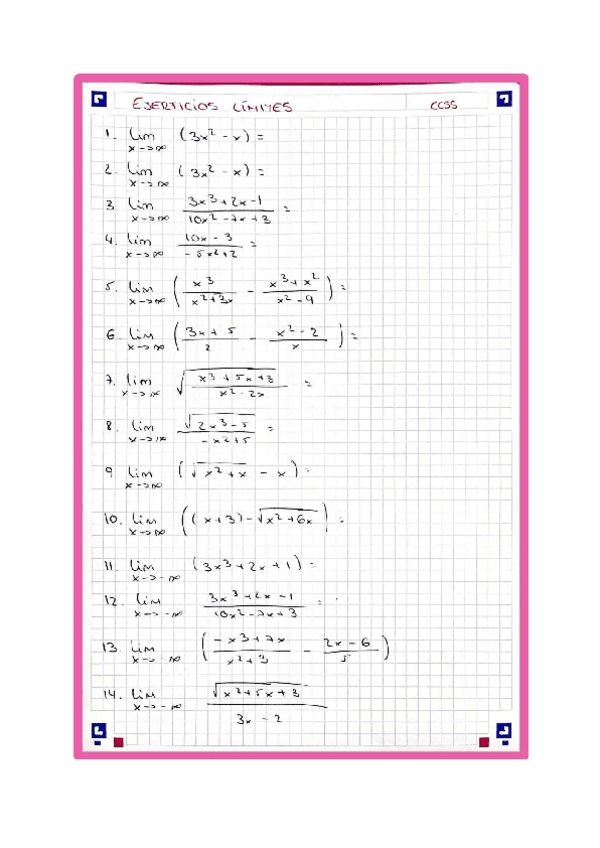 EJERCICIOS LÍMITES
CCSS
1. Lim x->∞ (3x² - x) =
2. Lim x->∞ (3x² - x) =
3. Lim x->∞ (3x³+2x-1)/(10x²-7x+3) =
4. Lim x->∞ (10x-3)/(-5x²+2) =
5. Lim x->∞ ( x³/(x²+3x) - (x³+x²)/(x²-9) ) =
6. Lim x->∞ ( (3x+5)/2 - (x²-2)/x ) =
7. Lim x->∞ √((x³+5x+3)/(x²-2x)) =
8. Lim x->∞ √(2x³-5)/(-x²+5) =
9 Lim x->∞ (√(x²+x) - x) =
10. Lim x->∞ ((x+3)-√(x²+6x)) =
11. Lim x->-∞ (3x³+2x+1) =
12. Lim x->-∞ (3x³+2x-1)/(10x²-7x+3) =
13. Lim x->-∞ ( (-x³+7x)/(x²+3) - (2x-6)/5 )
14. Lim x->-∞ √(x²+5x+3)/(3x-2)